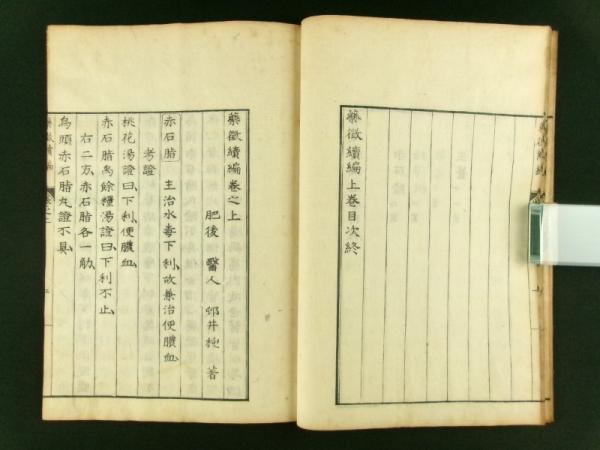 藥徵續編上卷目次終
藥徵續編卷之上
肥後 醫人 邨井杶 著
赤石脂 主治水毒下利、故兼治便膿血、
考證
桃花湯證曰、下利、便膿血、
赤石脂禹餘糧湯證曰、下利不止、
右二方、赤石脂各一觔、
烏頭赤石脂丸證不具、